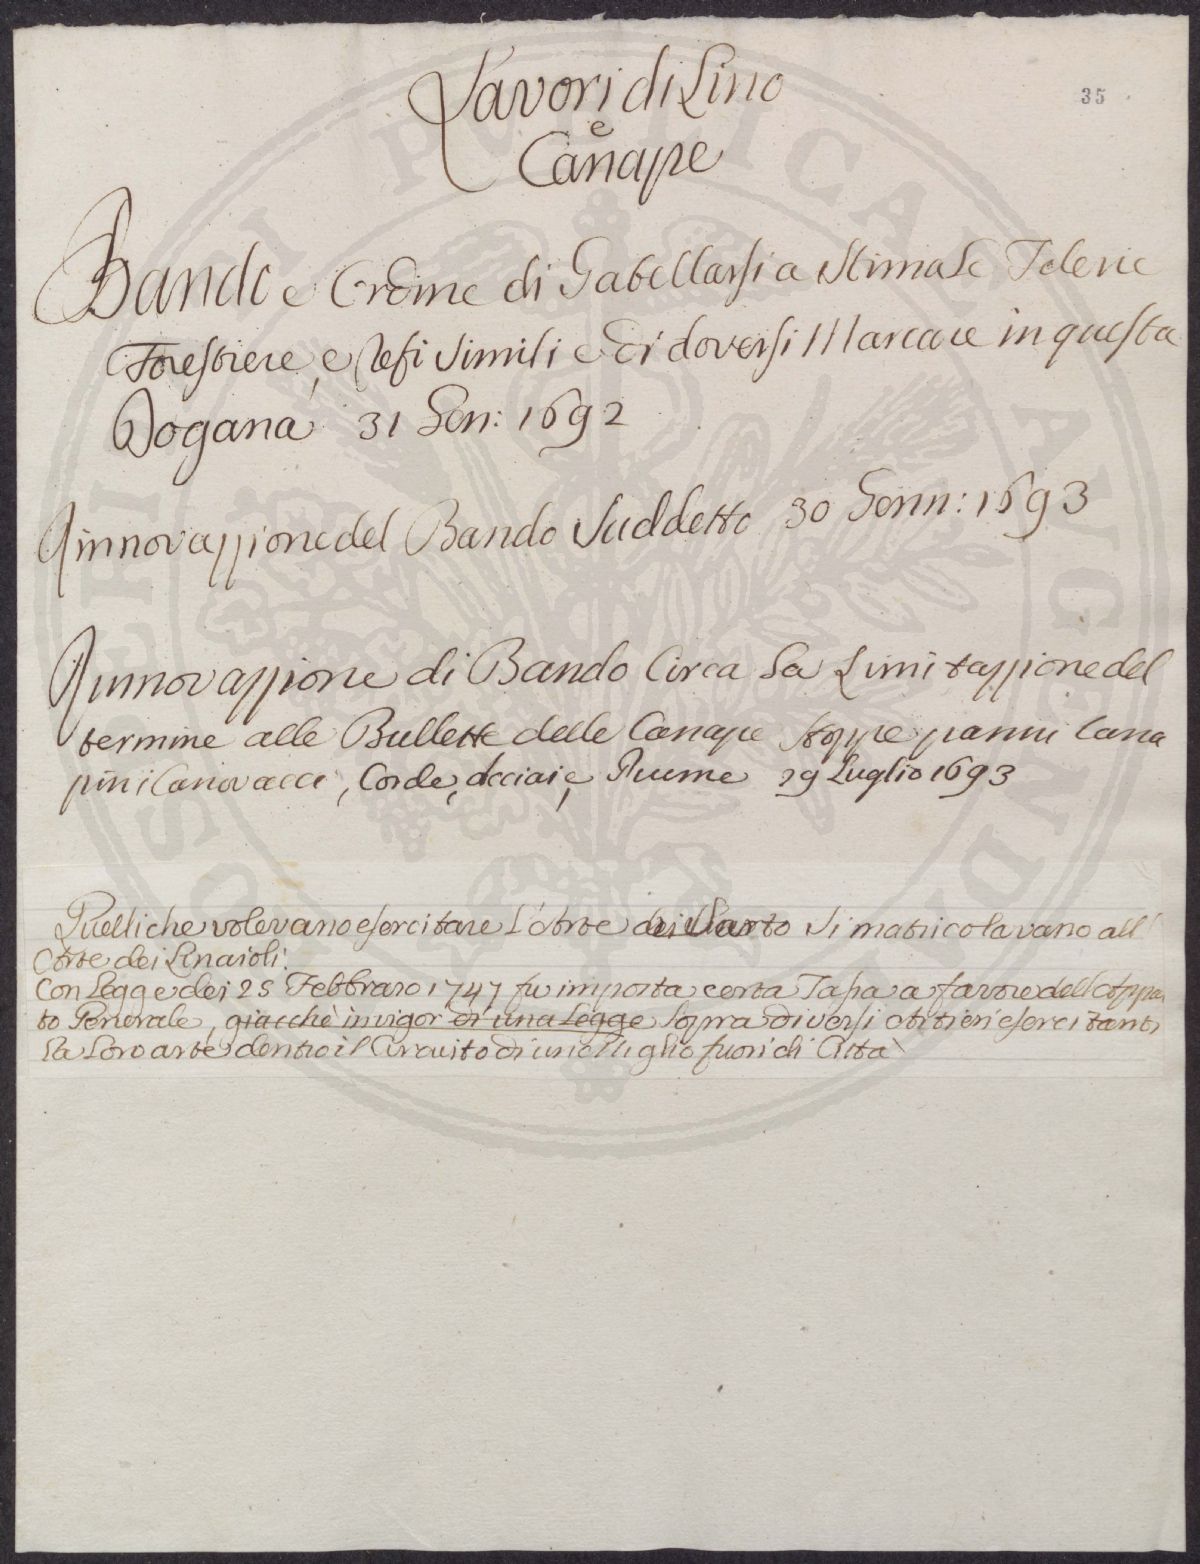 35
Lavori di Lino
e
Canape
Bando e Ordine di Gabellarsi a Stima Le Telerie
Forestiere, e Refi simili e di doversi Marcare in questa
Dogana 31 Gen: 1692
Rinnovazzione del Bando Suddetto 30 Genn: 1693
Rinnovazzione di Bando Circa La Limitazzione del
termine alle Bullette delle Canape stoppe panni Cana
pini Canovacci, Corde, Acciai e Piume 29 Luglio 1693
Quelli che volevano esercitare L'Arte del Sarto si matricolavano all'
Arte dei Linaioli.
Con Legge dei 25 Febbraro 1747 fu imposta certa Tassa a favore dell'Appal
to Generale, giacchè in vigor di una Legge Sopra diversi Artieri esercitanti
La Loro arte dentro il Circuito di un Miglio fuori di Città
SOCI PUBLICAE